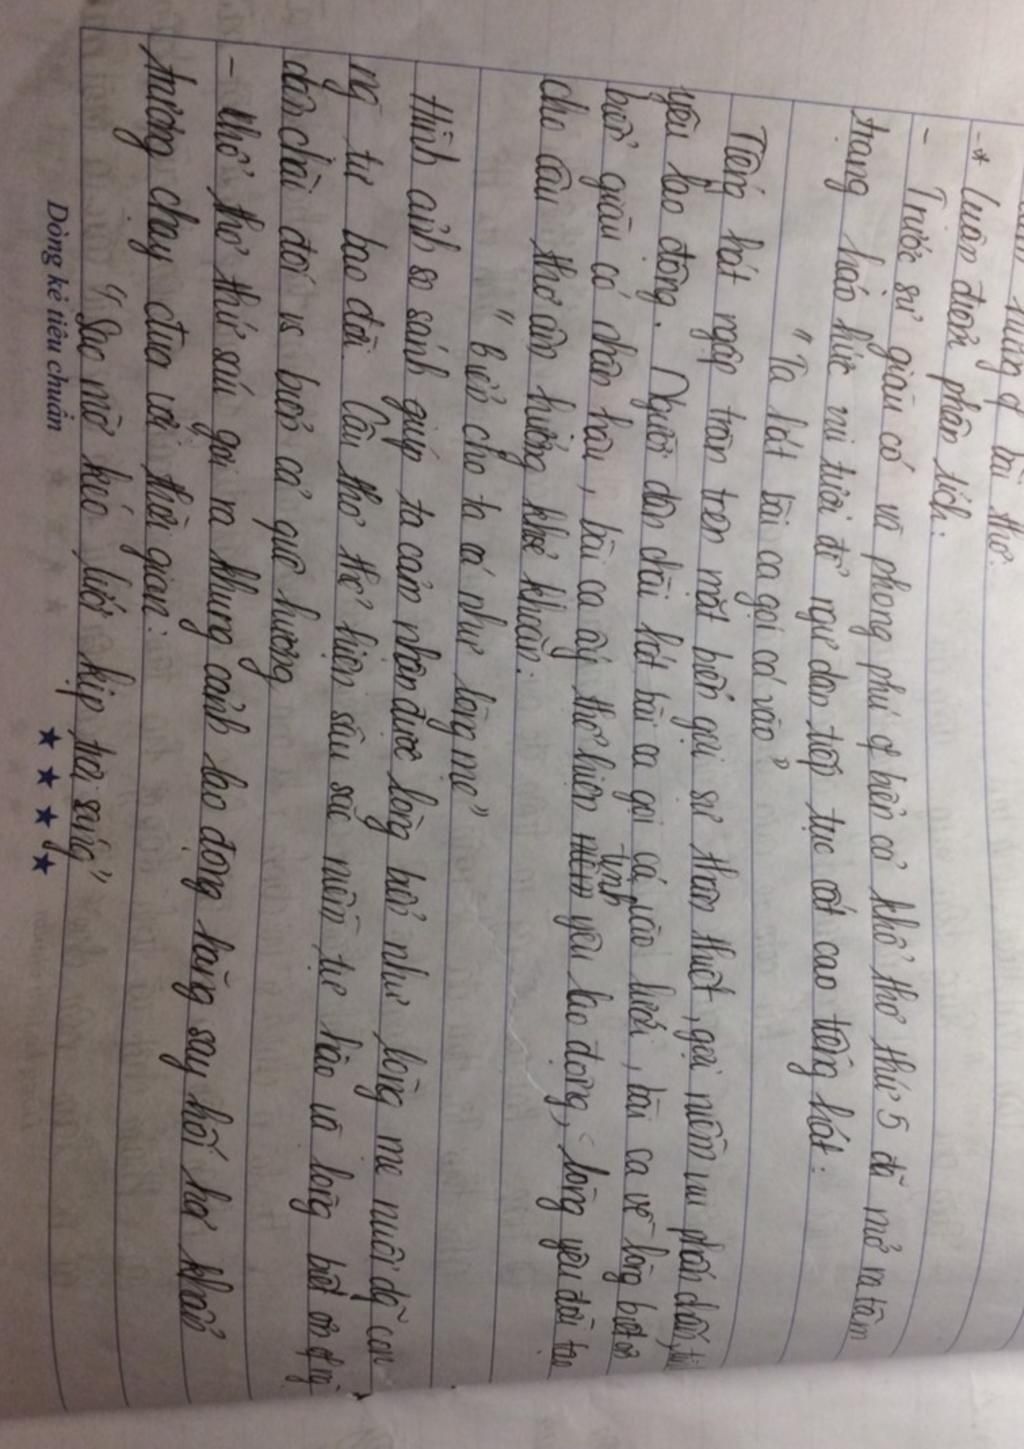 bài thơ.
-* Luận điểm phân tích:
- Trước sự giàu có và phong phú of biển cả khổ thơ thứ 5 đã mở ra tâm
trạng háo hức vui tươi để ngư dân tiếp tục cất cao tiếng hát:
"Ta hát bài ca gọi cá vào"
Tiếng hát ngập tràn trên mặt biển gợi sự thân thiết, gợi niềm vui phấn chấn,
yêu lao động. Người dân chài hát bài ca gọi cá vào lưới, bài ca về lòng biết ơn
biển giàu có nhân hậu, bài ca ấy thể hiện tình yêu lao động, lòng yêu đời tạo
cho câu thơ âm hưởng khỏe khoắn:
"Biển cho ta cá như lòng mẹ"
Hình ảnh so sánh giúp ta cảm nhận được lòng biển như lòng mẹ nuôi dg̃ con
ng` tự bao đời. Câu thơ thể hiện sâu sắc niềm tự hào và lòng biết ơn of ng`
dân chài đối vs biển cả quê hương
- Khổ thơ thứ sáu gợi ra khung cảnh lao động hăng say hối hả khẩn
trương chạy đua với thời gian:
"Sao mờ kéo lưới kịp trời sáng"
Dòng kẻ tiêu chuẩn ★ ★ ★ ★